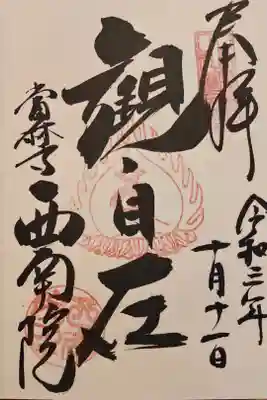 奉拝
令和三年
十月十一日
觀自在
當麻寺
西南院